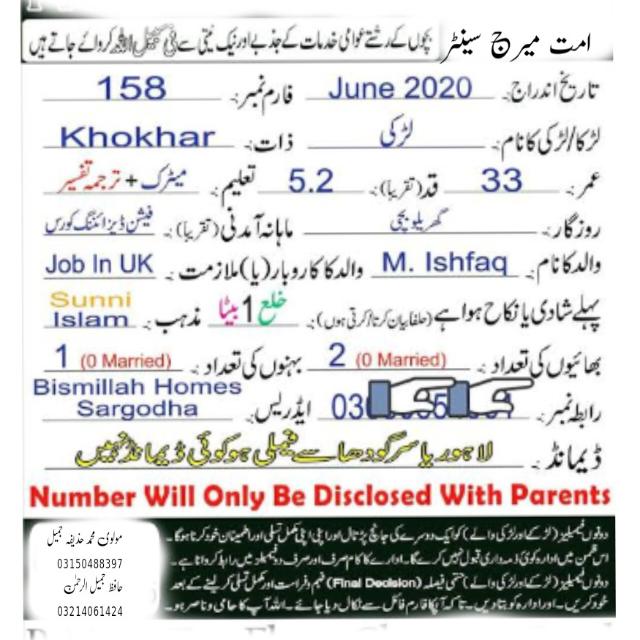 امت میرج سینٹر بچوں کے رشتے عوامی خدمات کے جذبے اور نیک نیتی سے فی سبیل اللہ کروائے جاتے ہیں
تاریخ اندراج: June 2020 فارم نمبر: 158
لڑکا/لڑکی کا نام: لڑکی ذات: Khokhar
عمر: 33 قد (تقریبا): 5.2 تعلیم: میٹرک + ترجمہ تفسیر
روزگار: گھریلو بچی ماہانہ آمدنی (تقریبا): فیشن ڈیزائننگ کورس
والد کا نام: M. Ishfaq والد کا کاروبار (یا) ملازمت: Job In UK
پہلے شادی یا نکاح ہوا ہے (حلفا بیان کرتا/کرتی ہوں): خلع 1 بیٹا مذہب: Sunni Islam
بھائیوں کی تعداد: 2 (0 Married) بہنوں کی تعداد: 1 (0 Married)
رابطہ نمبر: 03 ایڈریس: Bismillah Homes Sargodha
ڈیمانڈ: لاہور یا سرگودھا سے فیملی ہو کوئی ڈیمانڈ نہیں
Number Will Only Be Disclosed With Parents
دونوں فیملیز (لڑکے اور لڑکی والے) کو ایک دوسرے کی جانچ پڑتال اور اپنی اپنی مکمل تسلی اور اطمینان خود کرنا ہوگا۔
اس ضمن میں ادارہ کوئی ذمہ داری قبول نہیں کرے گا۔ ادارے کا کام صرف اور صرف دو فیملیز میں رابطہ کروانا ہے۔
دونوں فیملیز (لڑکے اور لڑکی والے) حتمی فیصلہ (Final Decision) فہم و فراست اور مکمل تسلی کر لینے کے بعد
خود کریں۔ اور ادارہ کو بتا دیں۔ تاکہ آپکا فارم فائل سے نکال دیا جائے۔ اللہ آپ کا حامی و ناصر ہو۔
مولوی محمد حذیفہ جمیل
03150488397
حافظ جمیل الرحمن
03214061424